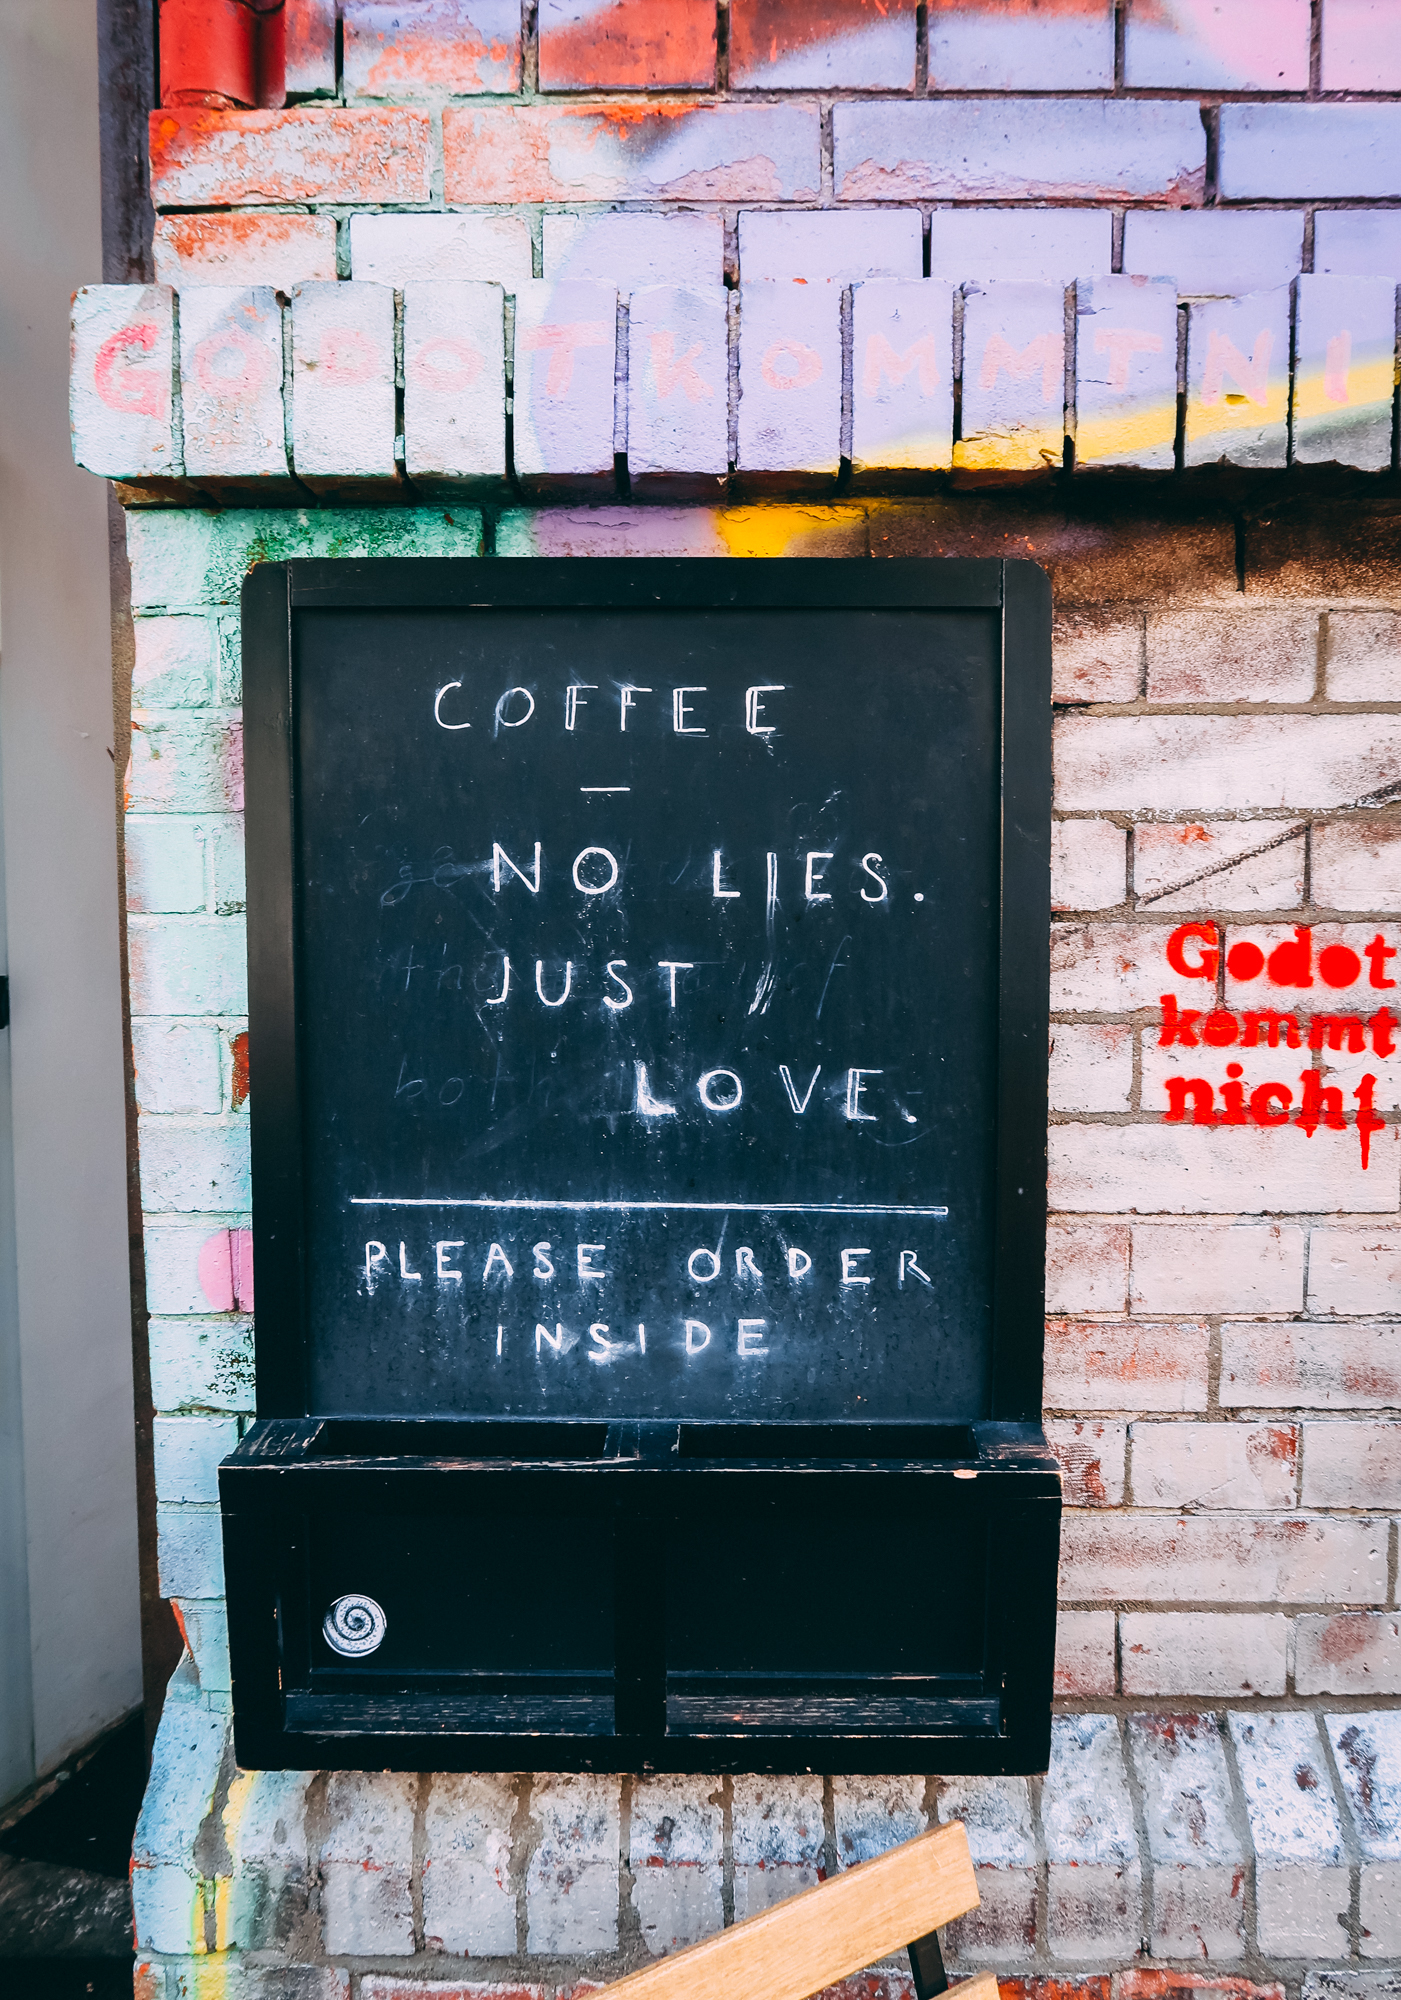 GODOTKOMMTNI
COFFEE
—
NO LIES.
JUST
LOVE.
PLEASE ORDER
INSIDE
Godot
kommt
nicht